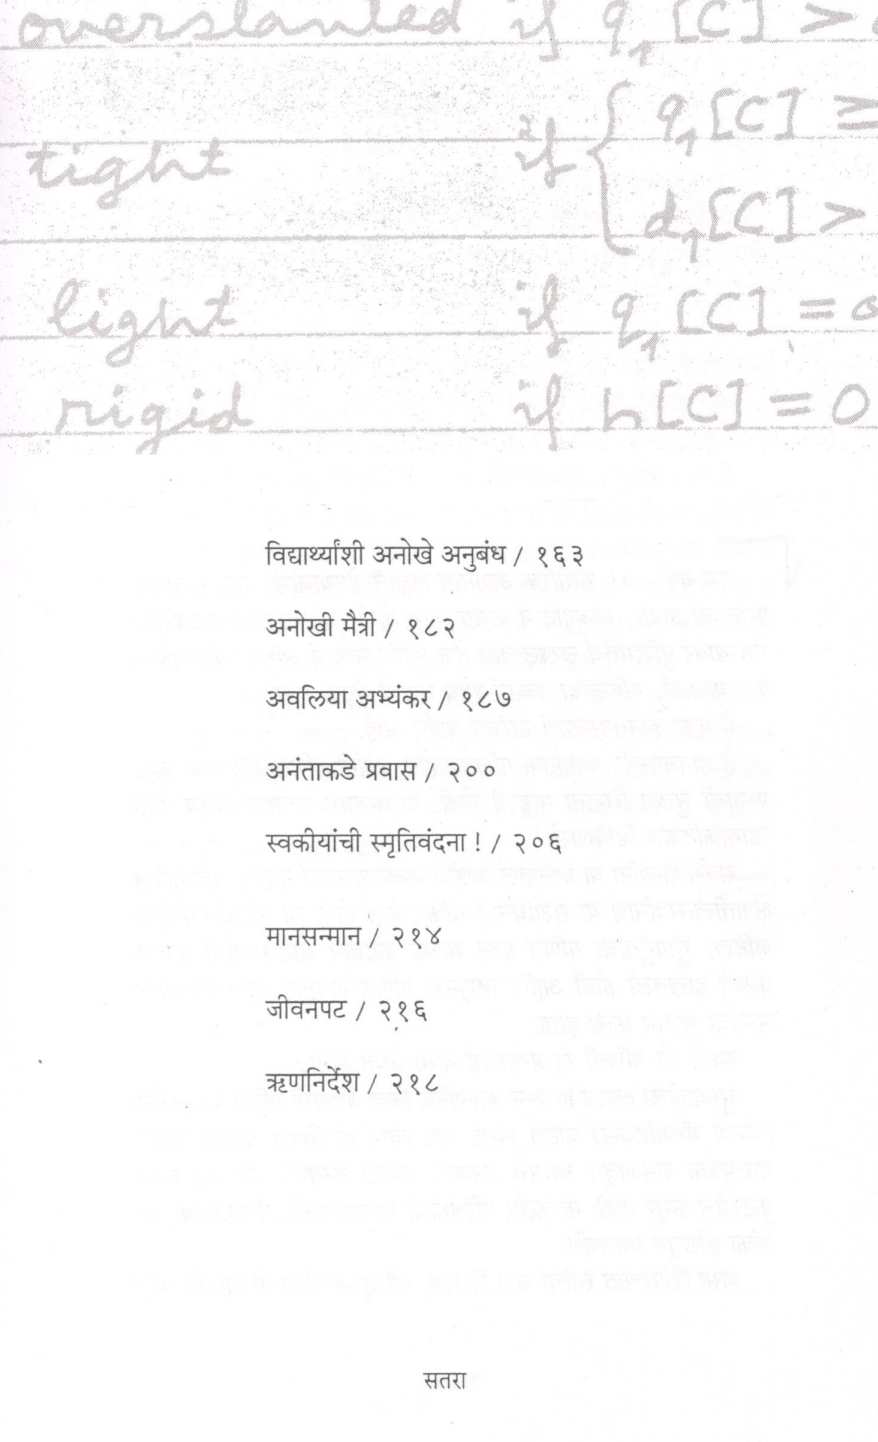 overslanted if q₁[C] >
tight if { q₁[C] ≥
d₁[C] >
light if q₁[C] = 0
rigid if h[C] = 0
विद्यार्थ्यांशी अनोखे अनुबंध / १६३
अनोखी मैत्री / १८२
अवलिया अभ्यंकर / १८७
अनंताकडे प्रवास / २००
स्वकीयांची स्मृतिवंदना ! / २०६
मानसन्मान / २१४
जीवनपट / २१६
ऋणनिर्देश / २१८
सतरा